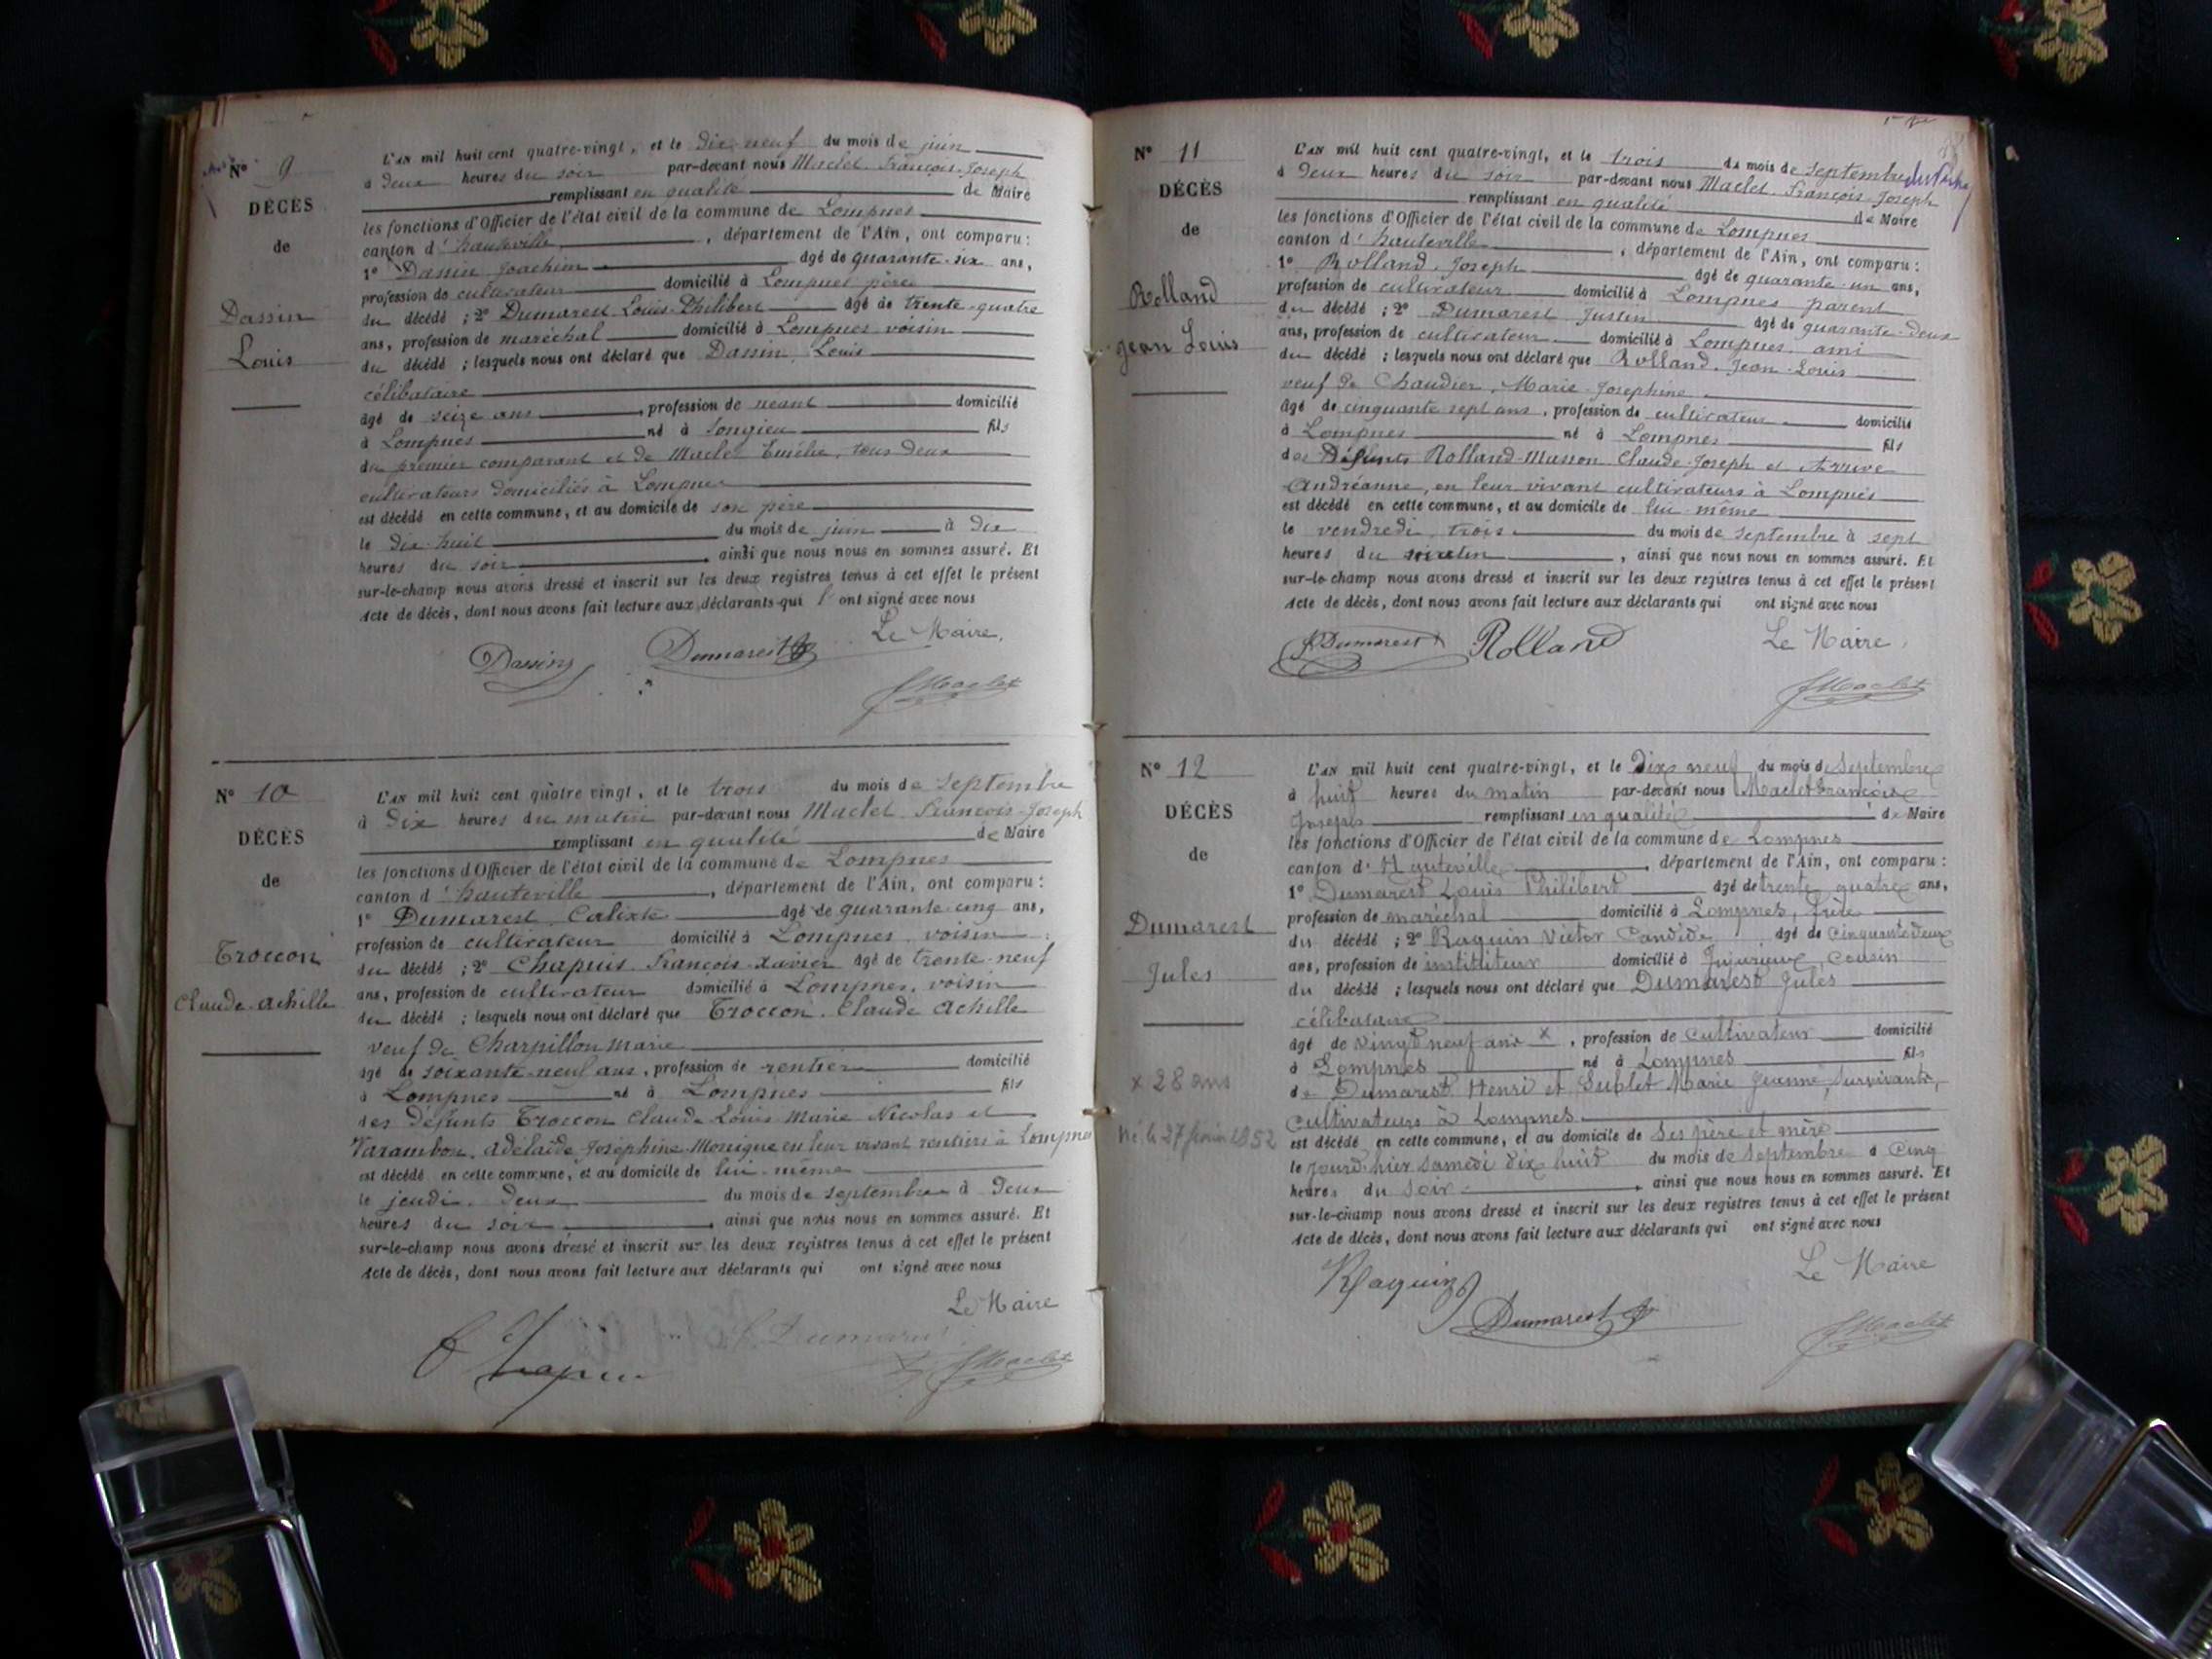 N° 9
DÉCÈS
de
Dassin
Louis
L'AN mil huit cent quatre-vingt, et le dix-neuf du mois de juin
à deux heures du soir par-devant nous Maclet François-Joseph
remplissant en qualité de Maire
les fonctions d'Officier de l'état civil de la commune de Lompnes
canton d'hauteville, département de l'Ain, ont comparu:
1° Dassin Joachim âgé de quarante-six ans,
profession de cultivateur domicilié à Lompnes père
du décédé; 2° Dumarest Louis-Philibert âgé de trente-quatre
ans, profession de maréchal domicilié à Lompnes voisin
du décédé; lesquels nous ont déclaré que Dassin, Louis
célibataire
âgé de seize ans, profession de néant domicilié
à Lompnes né à Songieu fils
du premier comparant et de Maclet Emélie, tous deux
cultivateurs domiciliés à Lompnes
est décédé en cette commune, et au domicile de son père
le dix-huit du mois de juin à dix
heures du soir, ainsi que nous nous en sommes assuré. Et
sur-le-champ nous avons dressé et inscrit sur les deux registres tenus à cet effet le présent
Acte de décès, dont nous avons fait lecture aux déclarants qui ont signé avec nous
Le Maire,
Dassin Dumarest
JMaclet
N° 10
DÉCÈS
de
Troccon
Claude-Achille
L'AN mil huit cent quatre vingt, et le trois du mois de septembre
à dix heures du matin par-devant nous Maclet François-Joseph
remplissant en qualité de Maire
les fonctions d'Officier de l'état civil de la commune de Lompnes
canton d'hauteville, département de l'Ain, ont comparu:
1° Dumarest Calixte âgé de quarante-cinq ans,
profession de cultivateur domicilié à Lompnes, voisin
du décédé; 2° Chapuis François-Xavier âgé de trente-neuf
ans, profession de cultivateur domicilié à Lompnes, voisin
du décédé; lesquels nous ont déclaré que Troccon, Claude Achille
veuf de Charpillon Marie
âgé de soixante-neuf ans, profession de rentier domicilié
à Lompnes né à Lompnes fils
des défunts Troccon Claude Louis Marie Nicolas et
Varambon, Adélaïde Joséphine Monique en leur vivant rentiers à Lompnes
est décédé en cette commune, et au domicile de lui-même
le jeudi, deux du mois de septembre à deux
heures du soir, ainsi que nous nous en sommes assuré. Et
sur-le-champ nous avons dressé et inscrit sur les deux registres tenus à cet effet le présent
Acte de décès, dont nous avons fait lecture aux déclarants qui ont signé avec nous
Le Maire
C Dumarest
JMaclet
N° 11
DÉCÈS
de
Rolland
Jean Louis
L'AN mil huit cent quatre-vingt, et le trois du mois de septembre
à deux heures du soir par-devant nous Maclet François-Joseph
remplissant en qualité de Maire
les fonctions d'Officier de l'état civil de la commune de Lompnes
canton d'hauteville, département de l'Ain, ont comparu:
1° Rolland, Joseph âgé de quarante-un ans,
profession de cultivateur domicilié à Lompnes parent
du décédé; 2° Dumarest Justin âgé de quarante-deux
ans, profession de cultivateur domicilié à Lompnes, ami
du décédé; lesquels nous ont déclaré que Rolland, Jean-Louis
veuf de Chaudier, Marie-Josephine
âgé de cinquante sept ans, profession de cultivateur domicilié
à Lompnes né à Lompnes fils
des Défunts Rolland-Masson Claude-Joseph et
Andréanne, en leur vivant cultivateurs à Lompnes
est décédé en cette commune, et au domicile de lui-même
le vendredi, trois du mois de septembre à sept
heures du, ainsi que nous nous en sommes assuré. Et
sur-le-champ nous avons dressé et inscrit sur les deux registres tenus à cet effet le présent
Acte de décès, dont nous avons fait lecture aux déclarants qui ont signé avec nous
JDumarest Rolland Le Maire,
JMaclet
N° 12
DÉCÈS
de
Dumarest
Jules
x 28 ans
Né le 27 1852
L'AN mil huit cent quatre-vingt, et le Dix neuf du mois de Septembre
à huit heures du matin par-devant nous Maclet François
Joseph remplissant en qualité de Maire
les fonctions d'Officier de l'état civil de la commune de Lompnes
canton d'Hauteville, département de l'Ain, ont comparu:
1° Dumarest Louis Philibert âgé de trente quatre ans,
profession de maréchal domicilié à Lompnes, frère
du décédé; 2° Raquin Victor Candide âgé de cinquante deux
ans, profession de instituteur domicilié à Jujurieux, cousin
du décédé; lesquels nous ont déclaré que Dumarest Jules
célibataire
âgé de vingt neuf ans x, profession de cultivateur domicilié
à Lompnes né à Lompnes fils
de Dumarest Henri et Sublet Marie Jeanne, survivants,
cultivateurs à Lompnes
est décédé en cette commune, et au domicile de ses père et mère
le jourd'hier samedi dix huit du mois de Septembre à cinq
heures du soir, ainsi que nous nous en sommes assuré. Et
sur-le-champ nous avons dressé et inscrit sur les deux registres tenus à cet effet le présent
Acte de décès, dont nous avons fait lecture aux déclarants qui ont signé avec nous
Raquin Le Maire
Dumarest
JMaclet